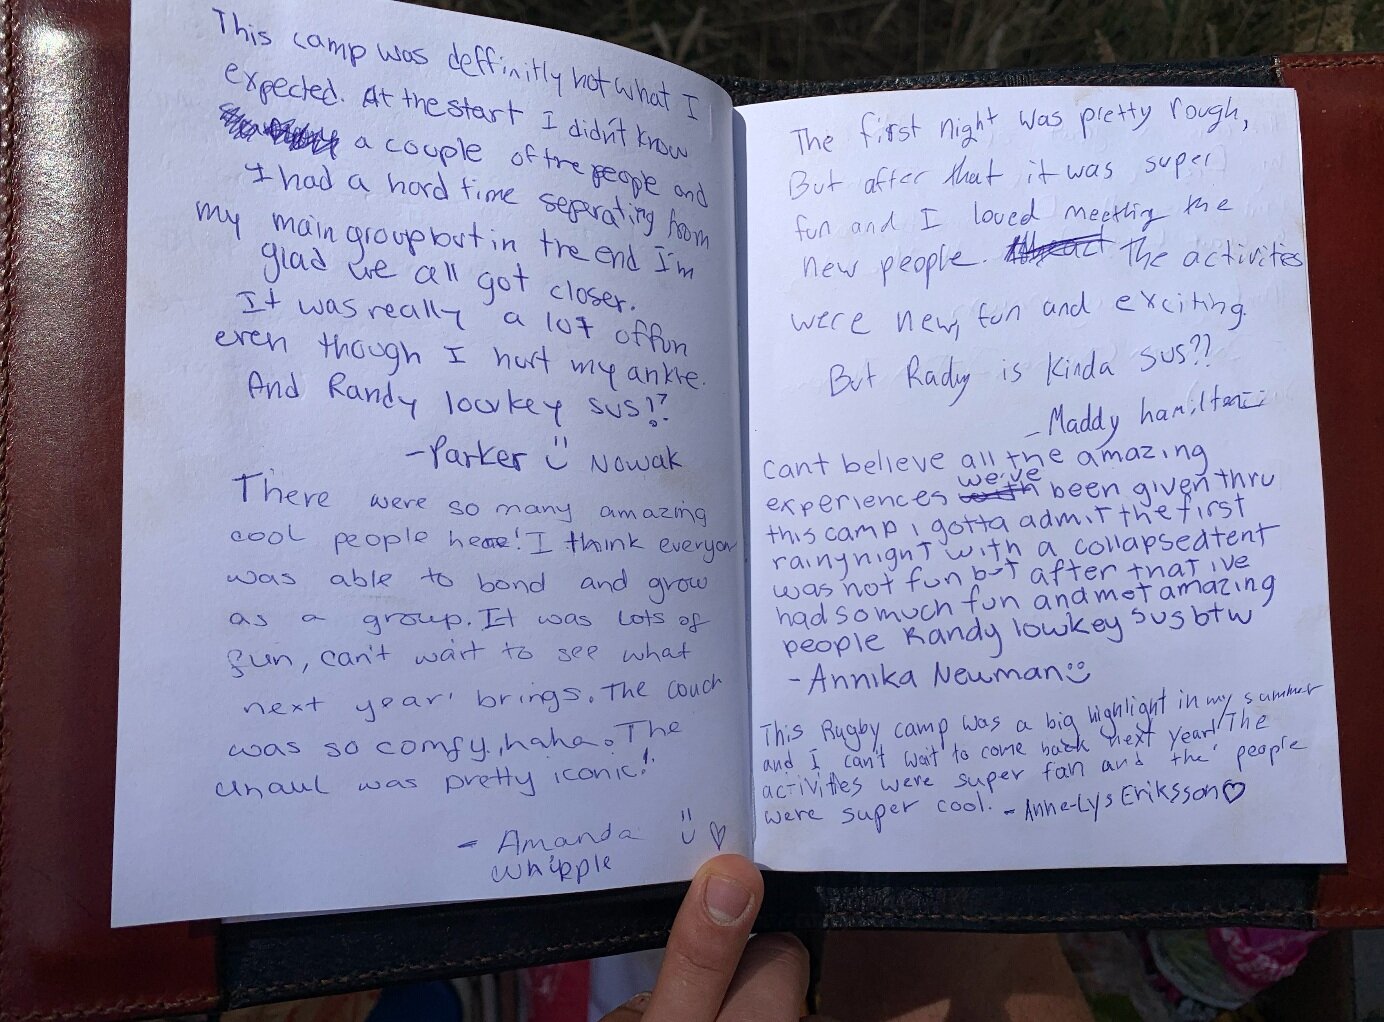 This camp was deffinitly not what I
expected. At the start I didn't know
a couple of the people and
I had a hard time seperating from
my main group but in the end I'm
glad we all got closer.
It was really a lot of fun
even though I hurt my ankle.
And Randy lowkey sus!?
-Parker Nowak
There were so many amazing
cool people here! I think everyon
was able to bond and grow
as a group. It was lots of
fun, can't wait to see what
next year brings. The couch
was so comfy, haha. The
uhaul was pretty iconic!
- Amanda
Whipple
The first night was pretty rough,
But after that it was super
fun and I loved meeting the
new people. The activities
were new, fun and exciting.
But Rady is kinda sus??
-Maddy hamilton
cant believe all the amazing
experiences we've been given thru
this camp i gotta admit the first
rainy night with a collapsed tent
was not fun but after that ive
had so much fun and met amazing
people Randy lowkey sus btw
-Annika Neuman
This Rugby camp was a big highlight in my summer
and I can't wait to come back next year! The
activities were super fun and the people
were super cool. - Anne-Lys Eriksson